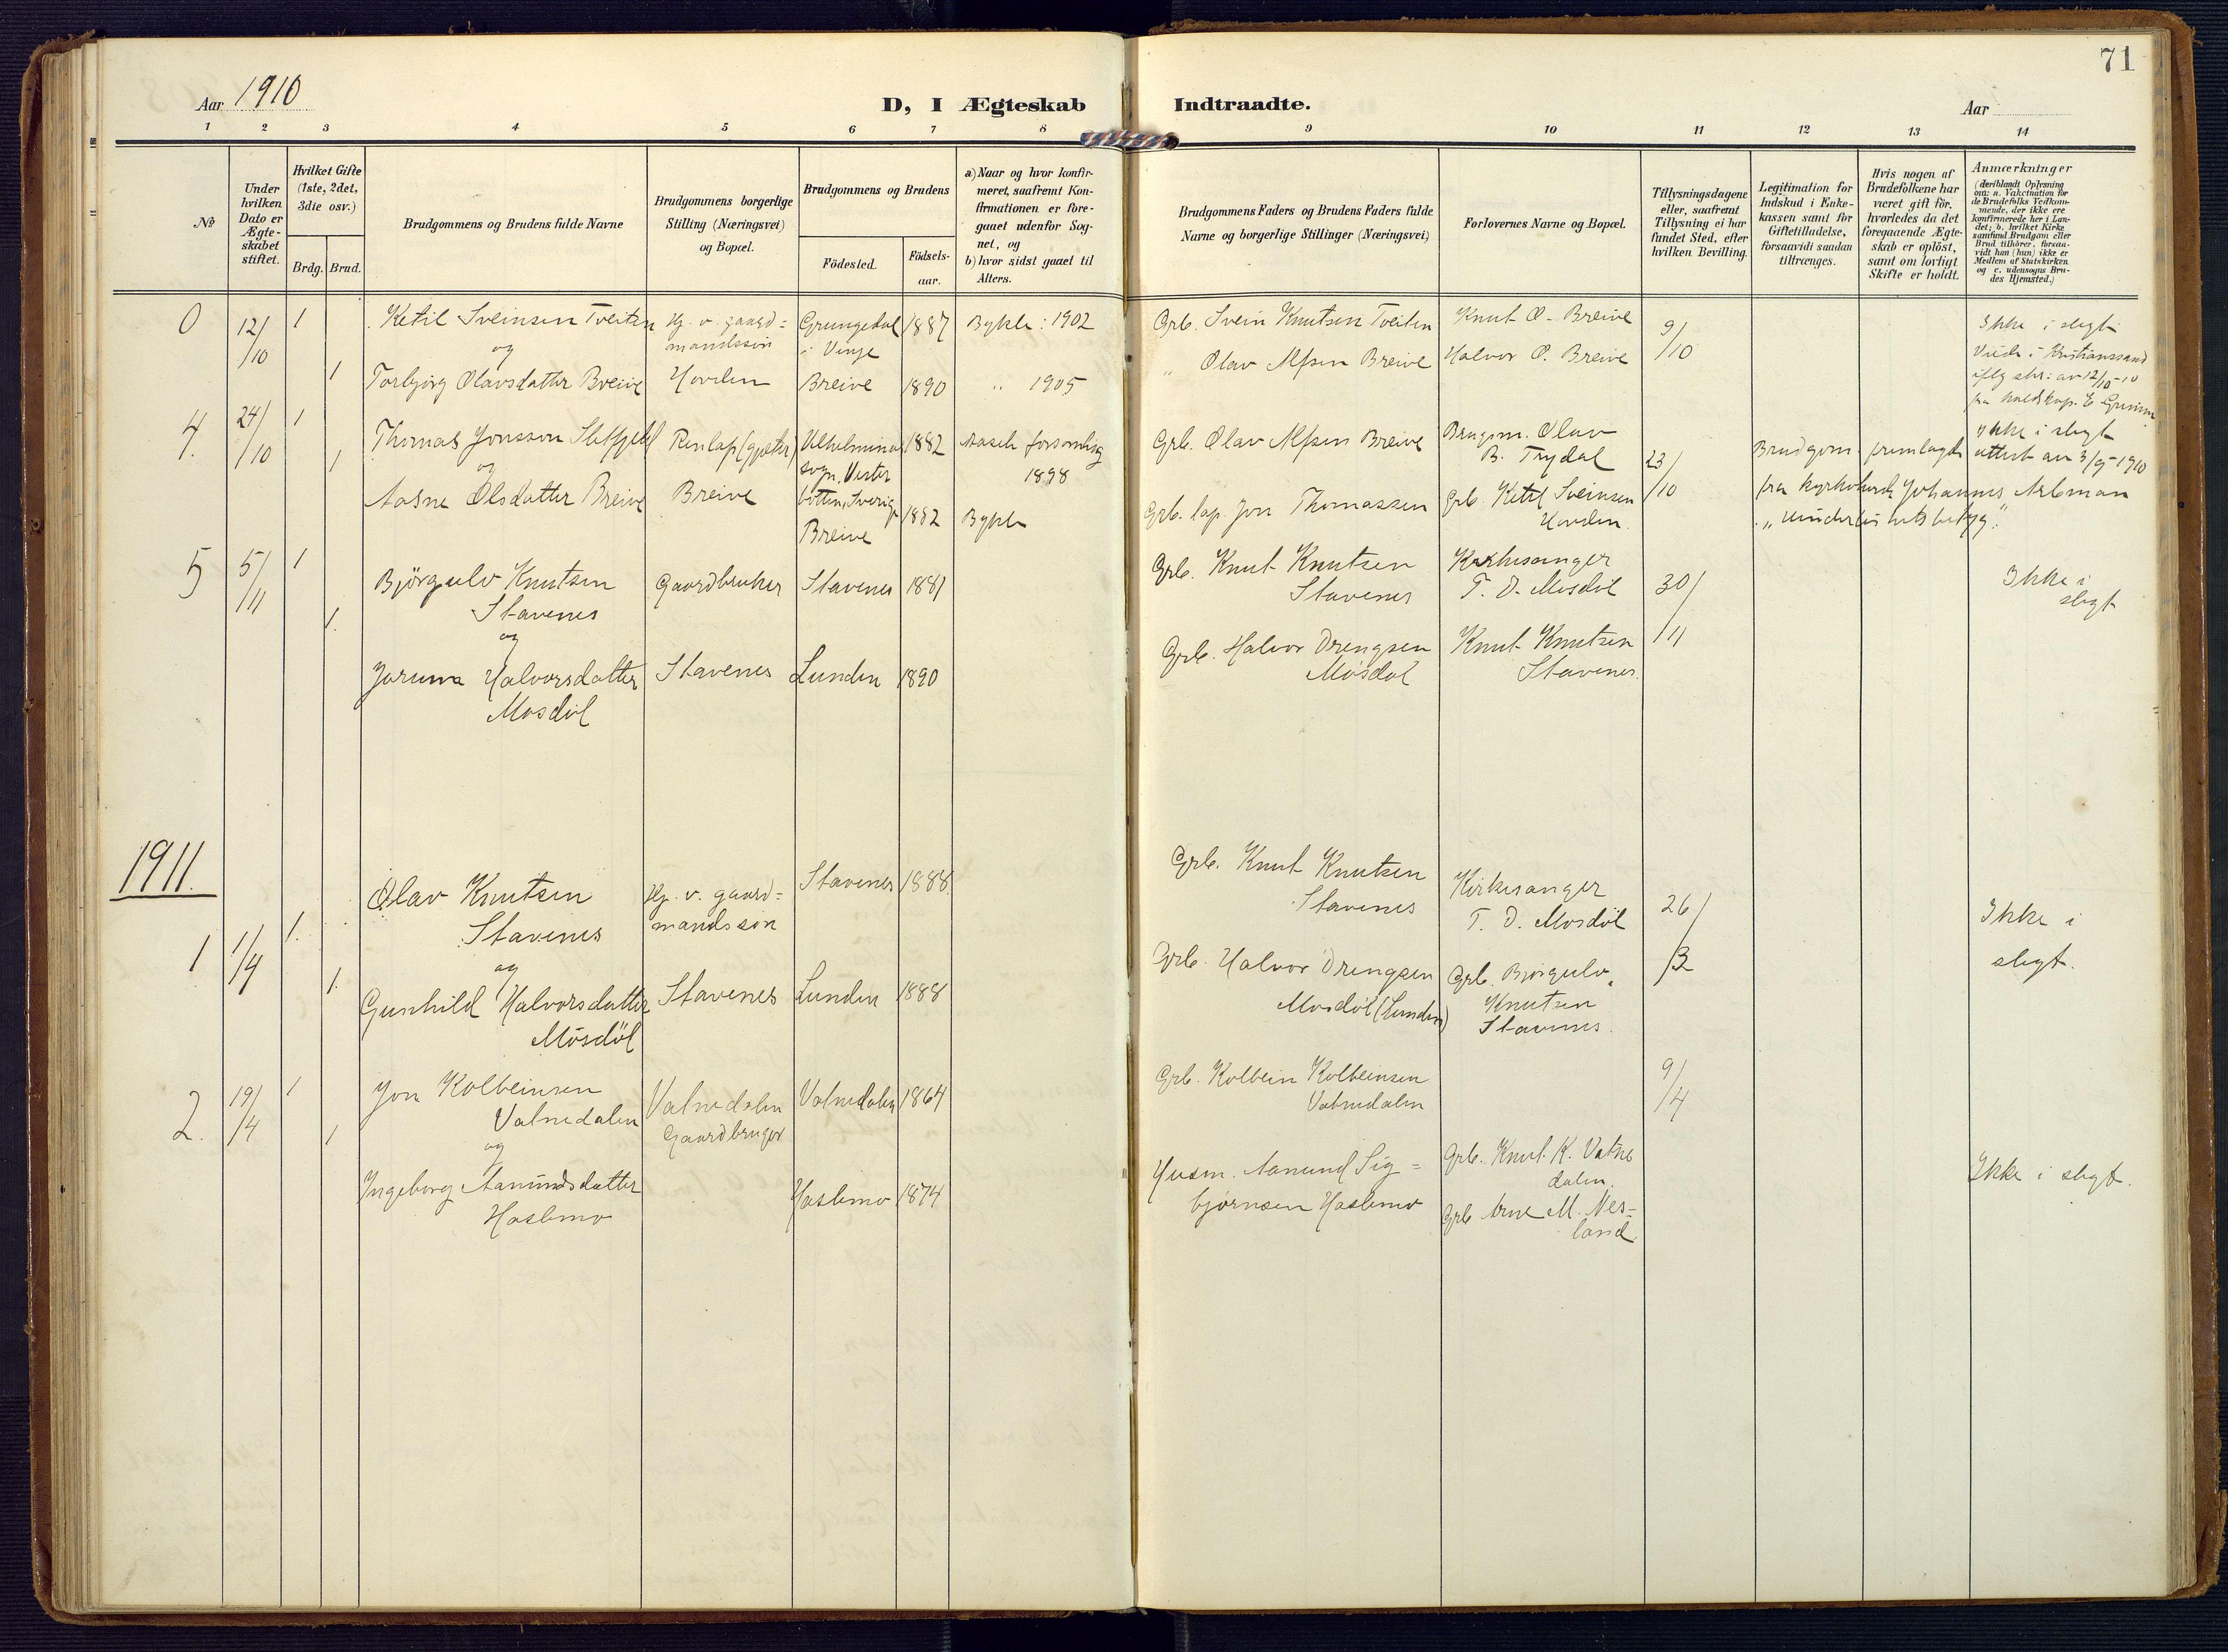 71
Aar 1910
D, I Ægteskab Indtraadte.
Aar
1 2 3 4 5 6 7 8 9 10 11 12 13 14
No
Under hvilken Dato er Ægte-skabet stiftet.
Hvilket Gifte (1ste, 2det, 3die osv.)
Brdg. Brud.
Brudgommens og Brudens fulde Navne
Brudgommens borgerlige Stilling (Næringsvei) og Bopæl.
Brudgommens og Brudens
Födested.
Födsels-aar.
a) Naar og hvor konfir-meret, saafremt Kon-firmationen er fore-gaaet udenfor Sog-net, og
b) hvor sidst gaaet til Alters.
Brudgommens Faders og Brudens Faders fulde Navne og borgerlige Stillinger (Næringsvei)
Forlovernes Navne og Bopæl.
Tillysningsdagene eller, saafremt Tillysning ei har fundet Sted, efter hvilken Bevilling.
Legitimation for Indskud i Enke-kassen samt for Giftetilladelse, forsaavidt saadan tiltrænges.
Hvis nogen af Brudefolkene har været gift för, hvorledes da det foregaaende Ægte-skab er oplöst, samt om lovligt Skifte er holdt.
Anmærkninger
(deriblandt Oplysning om: a. Vakcination för de Brudefolks Vedkom-mende, der ikke ere konfirmerede her i Lan-det; b. hvilket Kirke samfund Brudgom eller Brud tilhörer, forsaa-vidt han (hun) ikke er Medlem af Statskirken og c. udensogns Bru-des Hjemsted.)
0 12/10 1 Ketil Sveinsen Tveiten Hj. v. gaard= Grungedal 1887 Bykle: 1902 Grb. Svein Knutsen Tveiten Knut O. Breive 9/10 Ikke i slegt
og mandssön i Vinje Viede i Kristianssand
1 Torbjörg Olavsdatter Breive Hovden Breive 1890 " 1905 " Olav Alfsen Breive Halvor O. Breive iflg skr: av 12/10-10
4. 24/10 1 Thomas Jonsson Renlap (gjæter) Vilhelmina 1882 Aasele forsamling Grb. Olav Alfsen Breive Olav Ikke i slegt
1 og sogn. Vester 1898 B. Trydal 23/10 Brudgom fremlagde attest av 3/9-1910
Aasne Olsdatter Breive Breive botten, Sverige Grb. lap. Jon Thomassen Grb. Ketil Sveinsen fra kyrkoherde Johannes
Breive 1882 Bykle Hovden.
5 5/11 1 Björgulv Knutsen Gaardbruker Stavenes 1881 Grb. Knut Knutsen Kirkesanger 30/11 Ikke i
Stavenes Stavenes T. D. Mosdöl slegt
1. og
Jorunn Halvorsdatter Stavenes Lunden 1890 Grb. Halvor Drengsen Knut Knutsen
Mosdöl Mosdöl Stavenes.
1911.
Olav Knutsen Hj. v. gaard= Stavenes 1888. Grb. Knut Knutsen Kirkesanger 26/3
1 1/4 1. Stavenes mandssön Stavenes T. D. Mosdöl Ikke i
1. og slegt.
Gunhild Halvorsdatter Stavenes Lunden 1888 Grb. Halvor Drengsen Grb. Björgulv
Mosdöl Mosdöl (Lunden) Knutsen
Stavenes.
2. 19/4 1 Jon Kolbeinsen Vatnedalen Vatnedalen 1864 Grb. Kolbein Kolbeinsen 9/4
1 Vatnedalen Gaardbruger Vatnedalen
og Grb. Knut K. Vatne
Ingeborg Aanundsdatter Haslemo 1874 Husm. Aanund Sig= dalen. Ikke i slegt.
Haslemo björnsen Haslemo Grb Arne M. Nes=
land